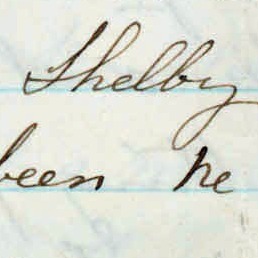 Shelby
been he